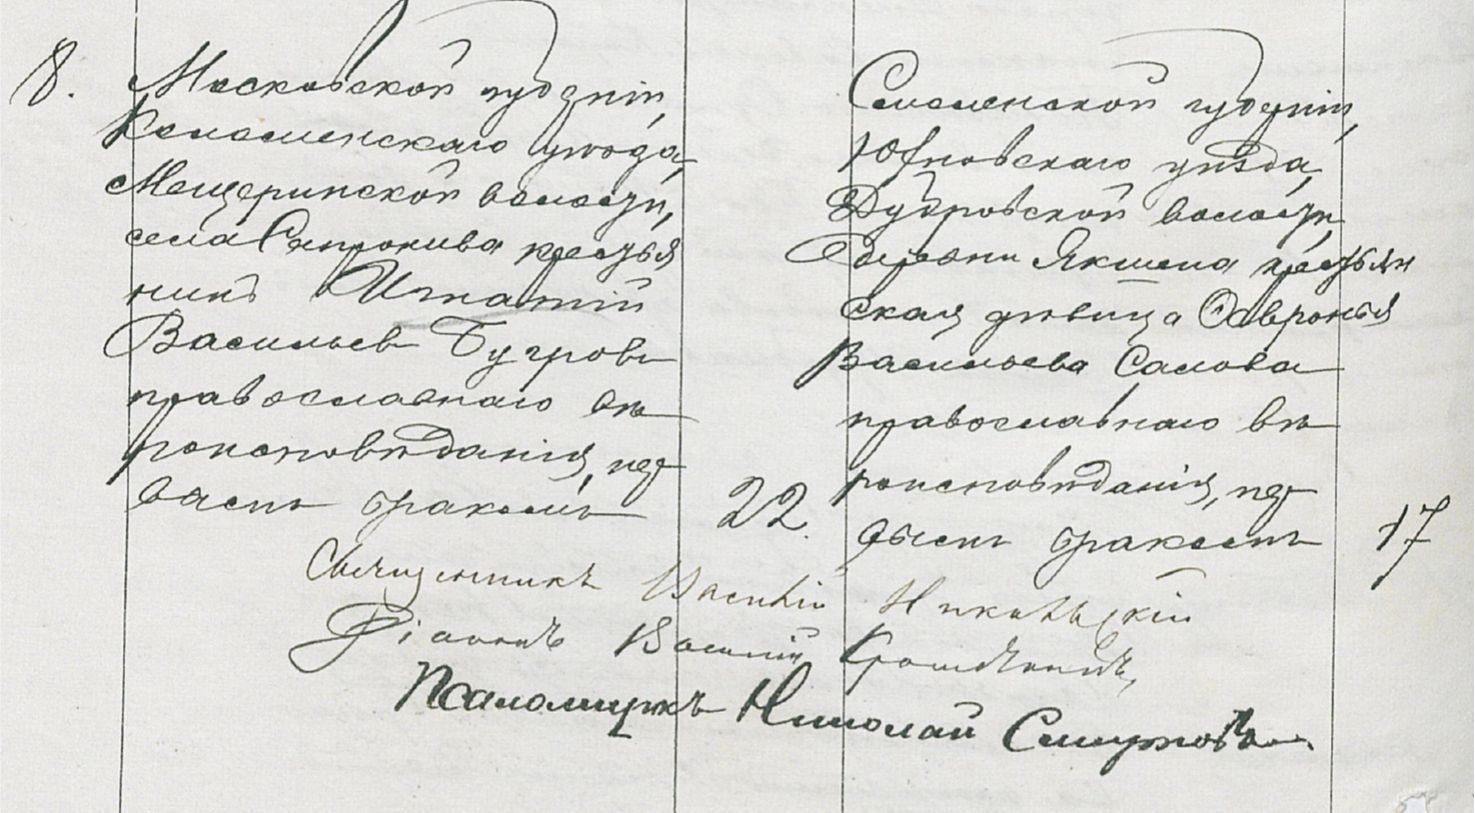 8.
Московской губерніи,
Коломенскаго уѣзда,
Мещеринской волости,
села Сапронива крестья
нинъ Игнатій
Васильев Бугровъ
православнаго вѣ
роисповѣданія, пер
вымъ бракомъ
22.
Смоленской губерніи,
Юхновскаго уѣзда,
Дубровской волости,
деревни Якшена крестьян
ская дѣвица Ѳевронья
Васильева Салова
православнаго вѣ
роисповѣданія, пер
вымъ бракомъ
17
Священникъ Василій Никольскій
Діаконъ Василій
Псаломщикъ Николай Смирновъ